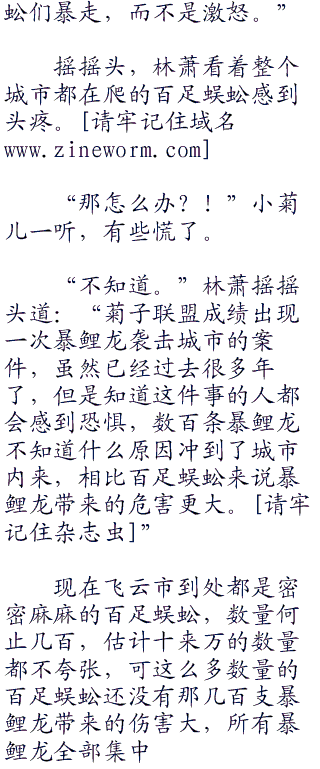 蚣们暴走，而不是激怒。”
摇摇头，林萧看着整个
城市都在爬的百足蜈蚣感到
头疼。[请牢记住域名
www.zineworm.com]
“那怎么办？！”小菊
儿一听，有些慌了。
“不知道。”林萧摇摇
头道：“菊子联盟成绩出现
一次暴鲤龙袭击城市的案
件，虽然已经过去很多年
了，但是知道这件事的人都
会感到恐惧，数百条暴鲤龙
不知道什么原因冲到了城市
内来，相比百足蜈蚣来说暴
鲤龙带来的危害更大。[请牢
记住杂志虫]”
现在飞云市到处都是密
密麻麻的百足蜈蚣，数量何
止几百，估计十来万的数量
都不夸张，可这么多数量的
百足蜈蚣还没有那几百支暴
鲤龙带来的伤害大，所有暴
鲤龙全部集中